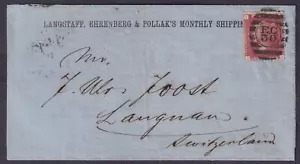 LANGSTAFF, EHRENBERG & POLLAK'S MONTHLY SHIPPI
EC
Mr.
J. Ulr. Joost
Langnau
Switzerland